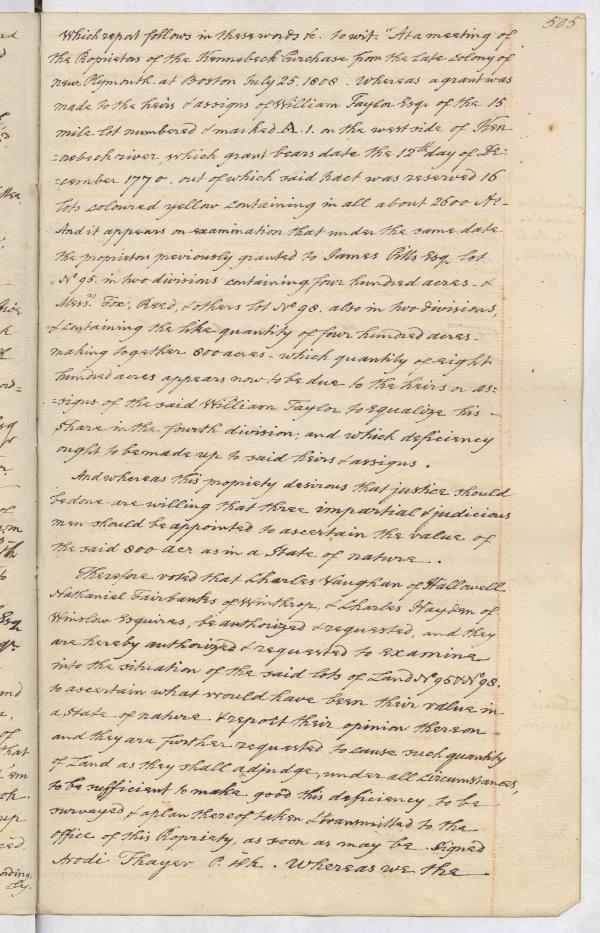 505
Which report follows in these words &c. to wit. "At a meeting of
the Proprietors of the Kennebeck Purchase from the late colony of
new Plymouth at Boston July 25, 1808. Whereas a grant was
made to the heirs & assigns of William Taylor Esqr of the 15
mile lot numbered & marked A. 1. on the west side of Ken
=nebeck river which grant bears date the 12th day of De=
=cember 1770. out of which said tract was reserved 16
lots coloured yellow containing in all about 2600 As-
And it appears on examination that under the same date
the proprietors previously granted to James Pitts Esqr lot
No 95. in two divisions containing four hundred acres - &
Messrs Fox, Reed, & others lot No 98. also in two divisions,
& containing the like quantity of four hundred acres -
making together 800 acres - which quantity of eight
hundred acres appears now to be due to the heirs or as=
=signs of the said William Taylor to equalize his -
share in the fourth division; and which deficiency
ought to be made up to said heirs & assigns.
And whereas this propriety desirous that justice should
be done are willing that three impartial & judicious
men should be appointed to ascertain the value of
the said 800 acr as in a State of nature.
Therefore voted that Charles Vaughan of Hallowell
Nathaniel Fairbanks of Winthrop, & Charles Hayden of
Winslow Esquires, be authorized & requested, and they
are hereby authorized & requested to examine
into the situation of the said lots of Land No 95 & No 98.
to ascertain what would have been their value in
a State of nature & report their opinion thereon
and they are further requested to cause such quantity
of Land as they shall adjudge, under all circumstances,
to be sufficient to make good this deficiency, to be
surveyed & a plan thereof taken & transmitted to the
office of this Propriety, as soon as may be Signed
Arodi Thayer P. Clk. Whereas we the